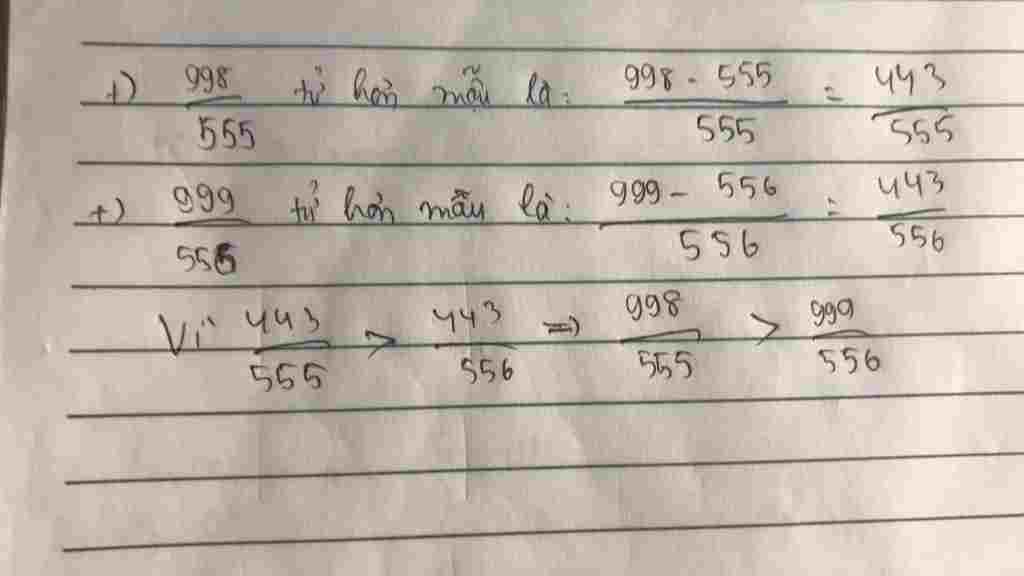 +) 998/555 tử hơn mẫu là: (998 - 555)/555 = 443/555
+) 999/556 tử hơn mẫu là: (999 - 556)/556 = 443/556
Vì 443/555 > 443/556 => 998/555 > 999/556